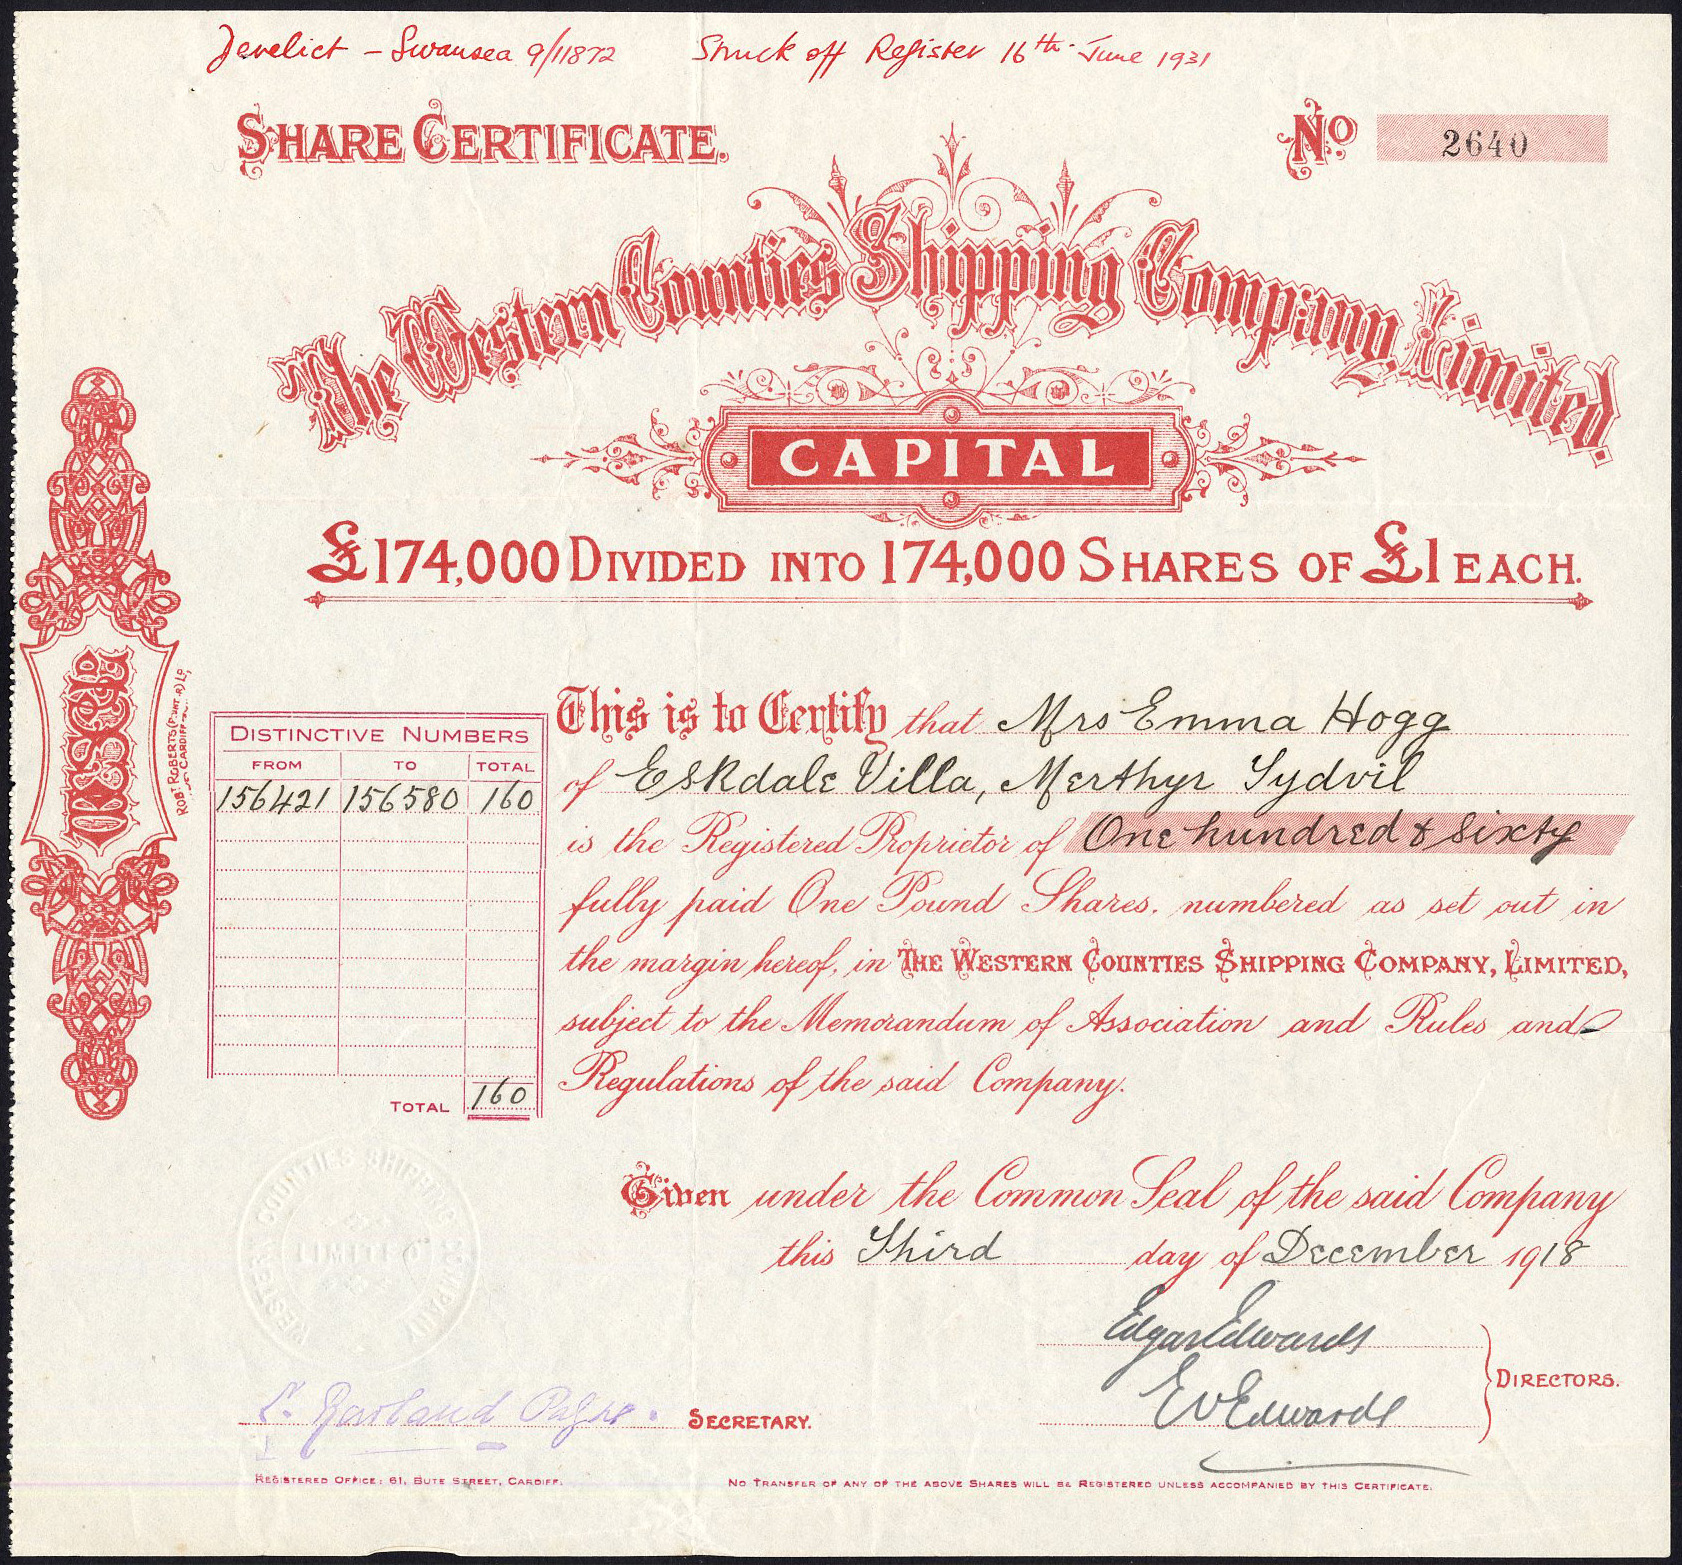 Derelict - Swansea 9/11872 Struck off Register 16th June 1931
SHARE CERTIFICATE. No 2640
The Western Counties Shipping Company, Limited.
CAPITAL
£174,000 DIVIDED INTO 174,000 SHARES OF £1 EACH.
DISTINCTIVE NUMBERS
FROM TO TOTAL
156421 156580 160
TOTAL 160
This is to Certify that Mrs Emma Hogg
of Eskdale Villa, Merthyr Tydvil
is the Registered Proprietor of One hundred & sixty
fully paid One Pound Shares, numbered as set out in
the margin hereof, in THE WESTERN COUNTIES SHIPPING COMPANY, LIMITED,
subject to the Memorandum of Association and Rules and
Regulations of the said Company.
Given under the Common Seal of the said Company
this Third day of December 1918
Edgar Edwards
E V Edwards
DIRECTORS.
WESTERN COUNTIES SHIPPING COMPANY
LIMITED
SECRETARY.
REGISTERED OFFICE: 61, BUTE STREET, CARDIFF.
NO TRANSFER OF ANY OF THE ABOVE SHARES WILL BE REGISTERED UNLESS ACCOMPANIED BY THIS CERTIFICATE.
ROBT ROBERTS LD,
CARDIFF